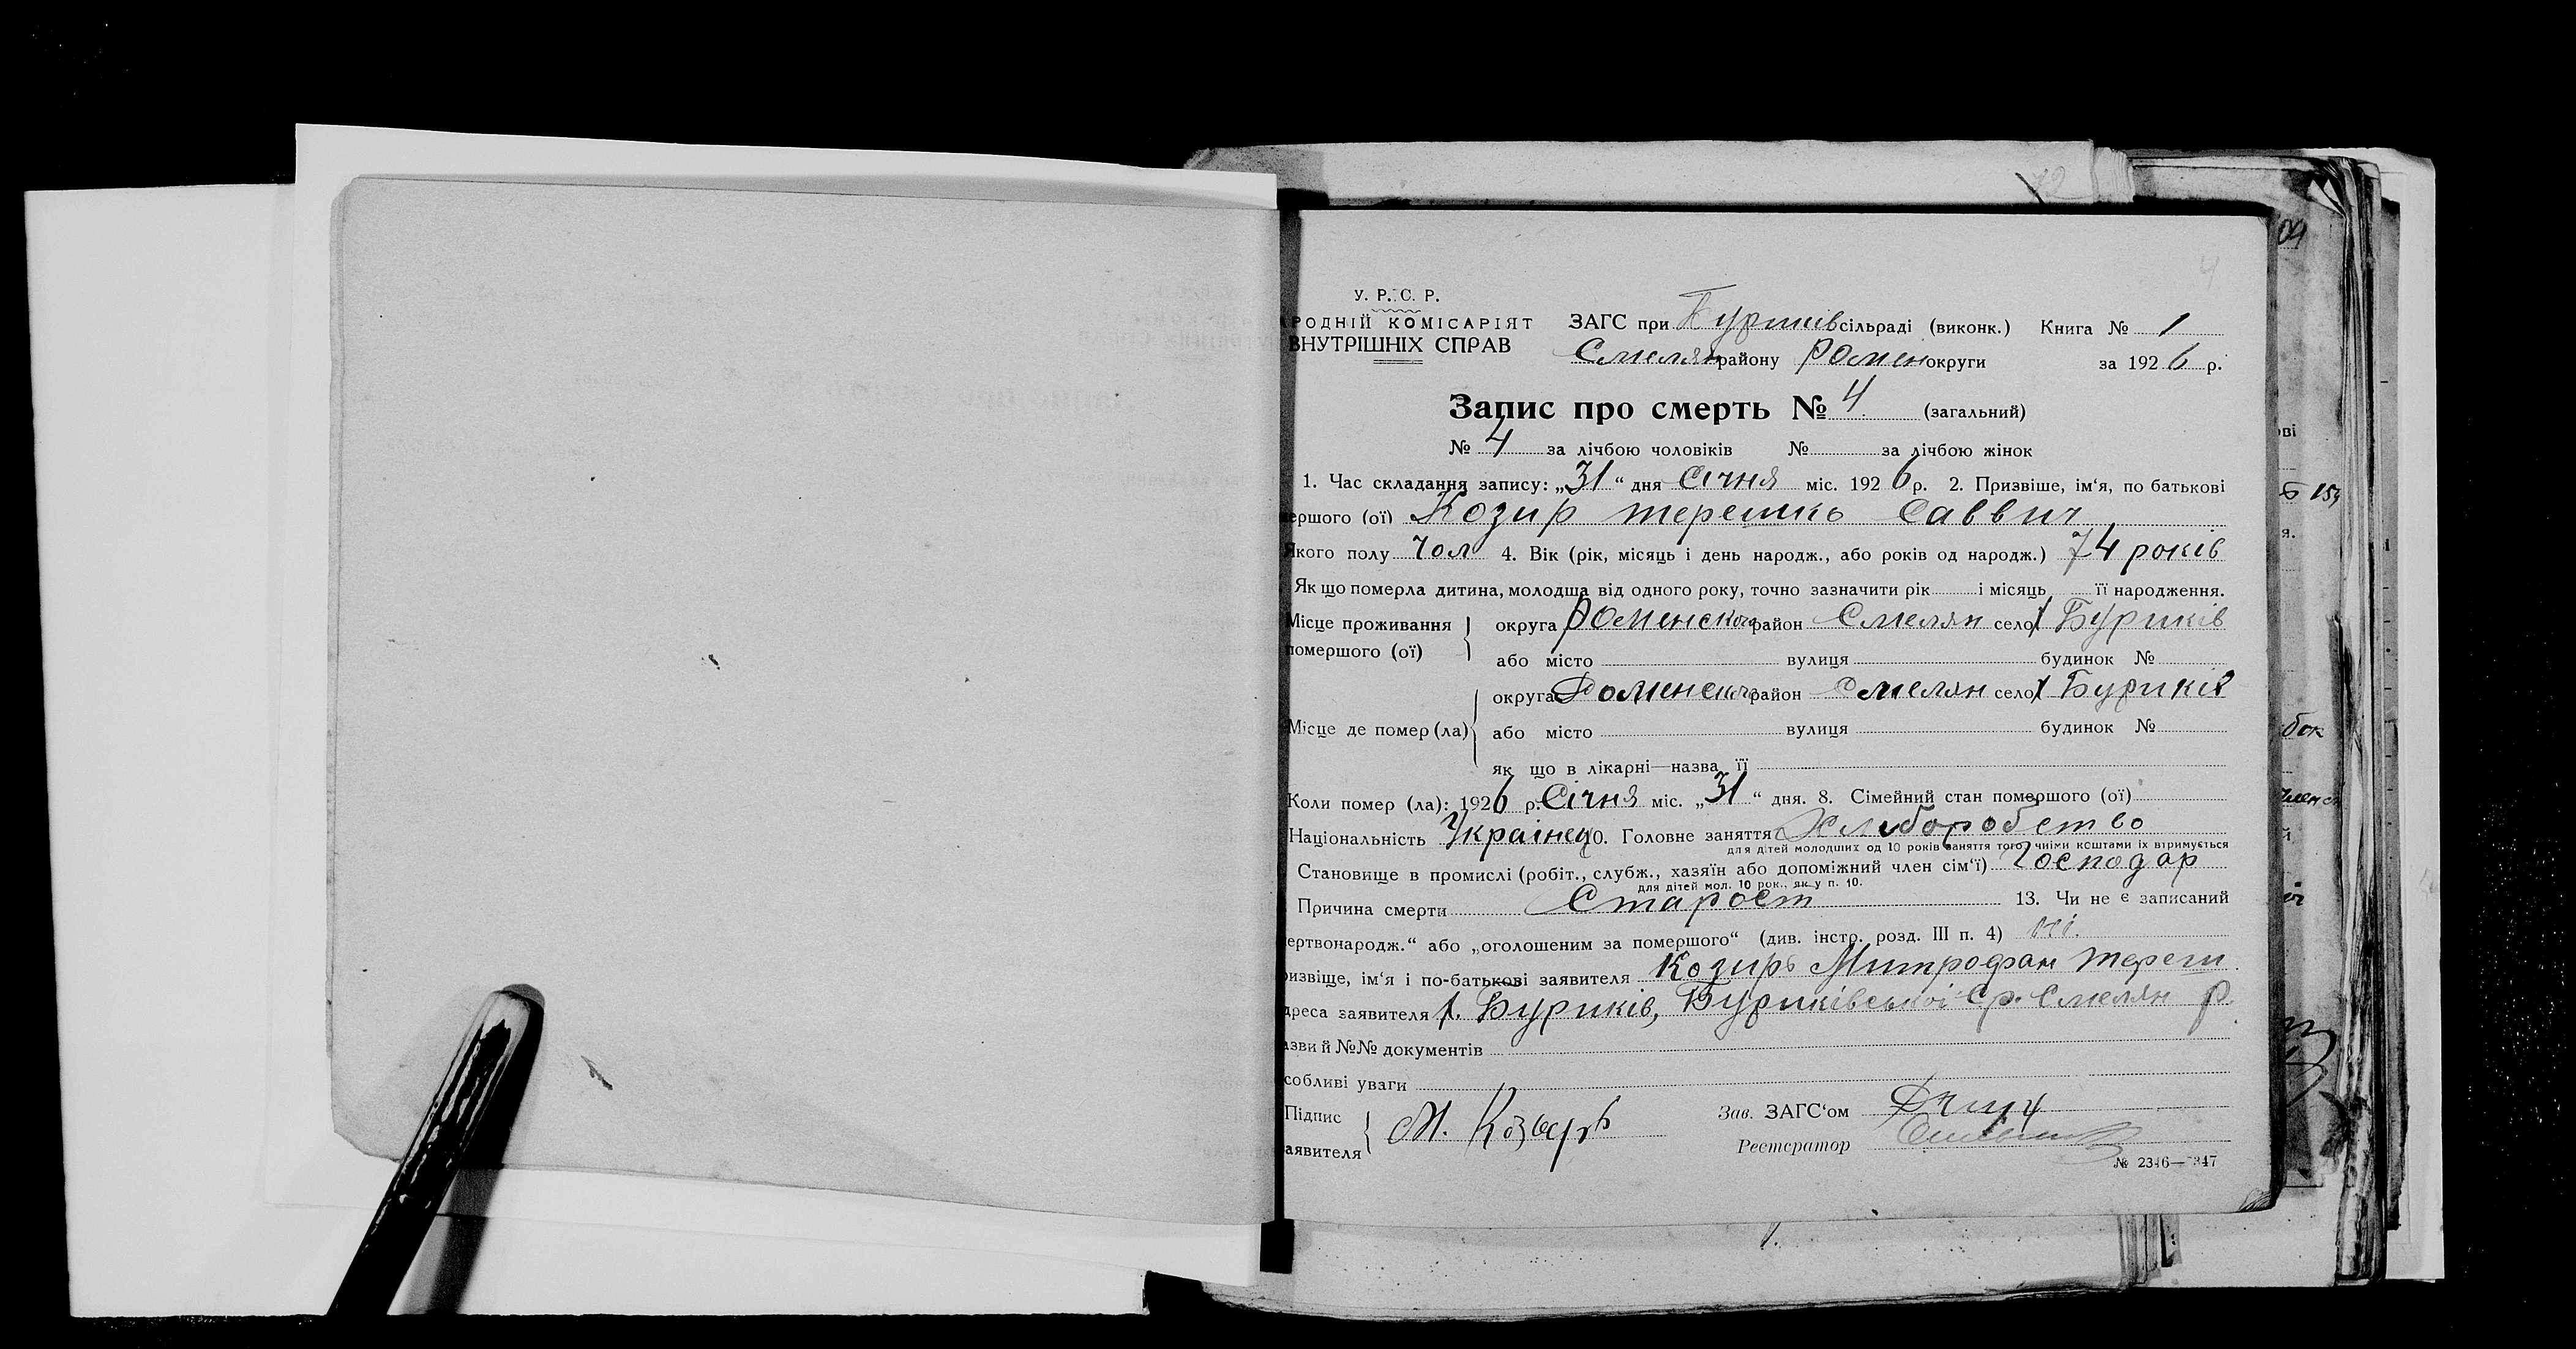 4
У. Р. С. Р.
РОДНІЙ КОМІСАРІЯТ
ВНУТРІШНІХ СПРАВ
ЗАГС при Буриків сільраді (виконк.) Книга № 1
Смелян району Ромен округи за 1926 р.
Запис про смерть № 4 (загальний)
№ 4 за лічбою чоловіків № за лічбою жінок
1. Час складання запису: „31“ дня Січня міс. 1926 р. 2. Призвіше, ім‘я, по батькові
ершого (ої) Козир терешко Саввич
Якого полу чол 4. Вік (рік, місяць і день народж., або років од народж.) 74 років
Як що померла дитина, молодша від одного року, точно зазначити рік і місяць її народження.
Місце проживання
помершого (ої)
округа Роменского район Смелян село х Буриків
або місто вулиця будинок №
Місце де помер (ла)
округа Роменског район Смелян село х Буриків
або місто вулиця будинок №
як що в лікарні—назва її
Коли помер (ла): 1926 р. Січня міс. „31“ дня. 8. Сімейний стан помершого (ої)
Національність Українец 10. Головне заняття Хлиборобство
для дітей молодших од 10 років заняття того, чиїми коштами їх втримується
Становище в промислі (робіт., служб., хазяїн або допоміжний член сім‘ї) Господар
для дітей мол. 10 рок., як у п. 10.
Причина смерти Старост 13. Чи не є записаний
ертвонародж.“ або „оголошеним за помершого“ (див. інстр. розд. III п. 4) ні.
ризвіще, ім‘я і по-батькові заявителя Козирь Митрофан Тереш.
дреса заявителя х. Буриків, Буриківської Ср. Смелян р.
азви й №№ документів
собливі уваги
Підпис
аявителя
М. Козырь
Зав. ЗАГС‘ом
Реєстратор
№ 2346—347